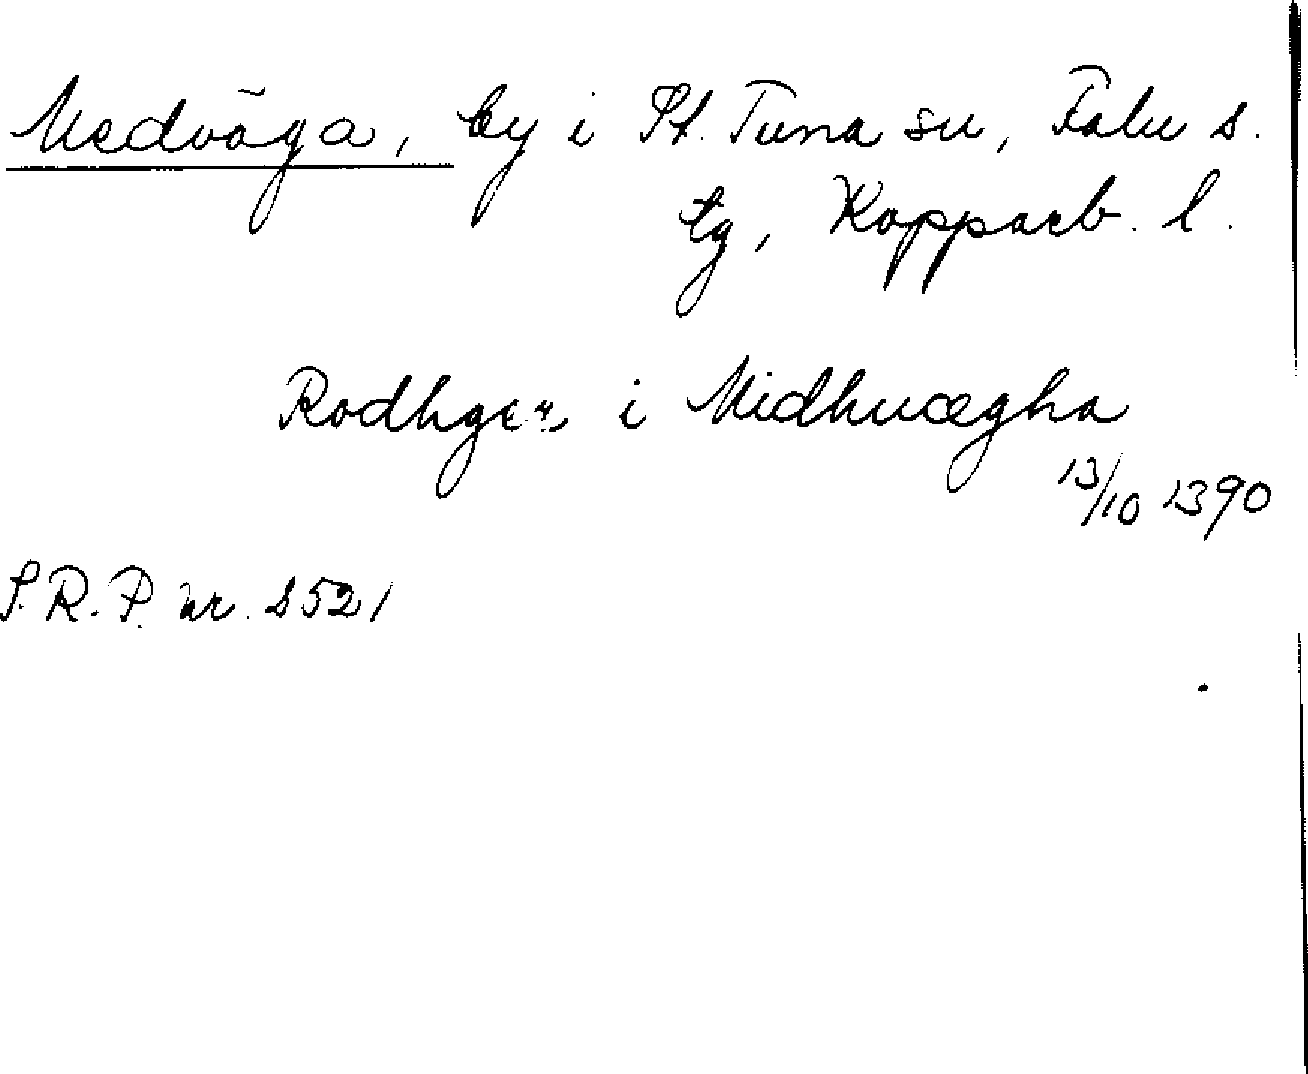 Medväga, by i St. Tuna sn, Falu s.
tg, Kopparb. l.
Rodhger i Midhuægha
13/10 1390
S.R.P. nr. 2521